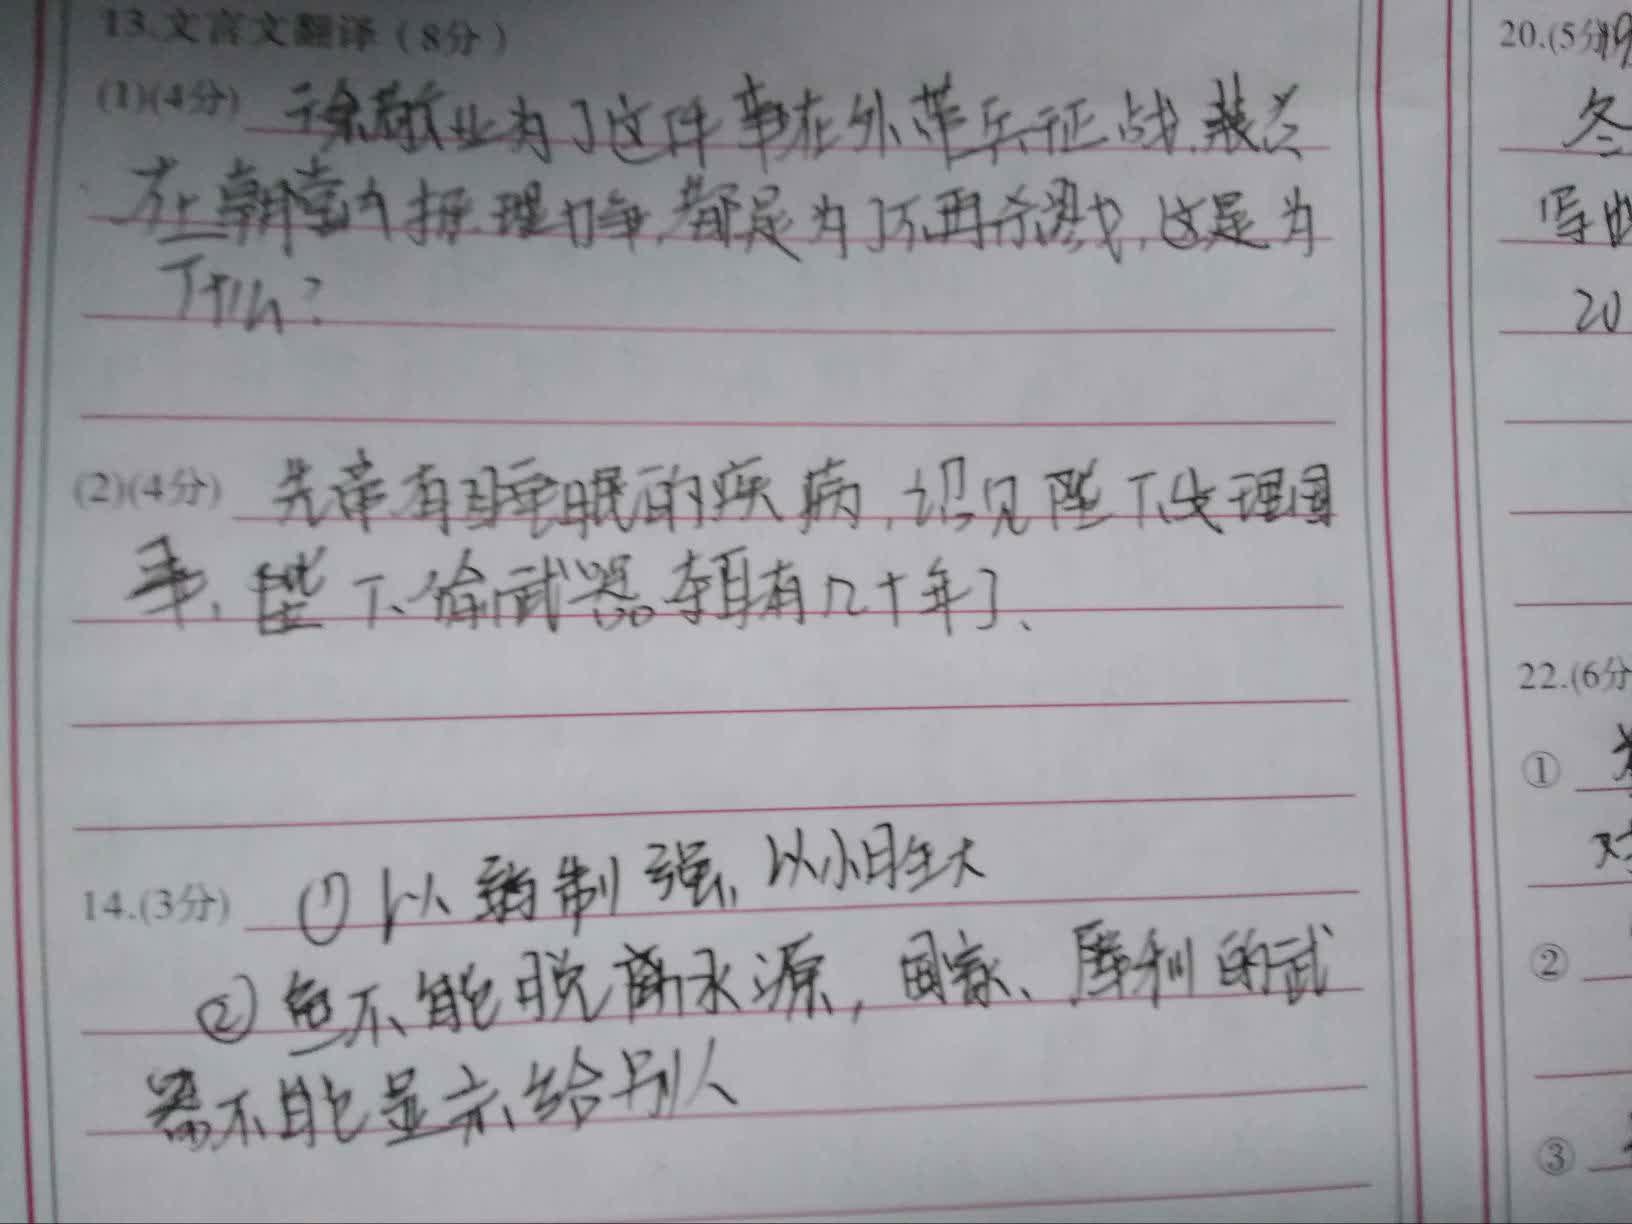 13.文言文翻译（8分）
(1)(4分) 徐敬业为了这件事在外带兵征战,裴炎
在朝堂内据理力争,都是为了不再杀戮,这是为
了什么?
(2)(4分) 先帝有睡眠的疾病,诏见陛下处理国
事,陛下偷武器 有几十年了、
14.(3分) ①以弱制强,以小胜大
②鱼不能脱离水源,国家、犀利的武
器不能显示给别人
20.(5分)
冬
写
20
22.(6分
①
对
②
③